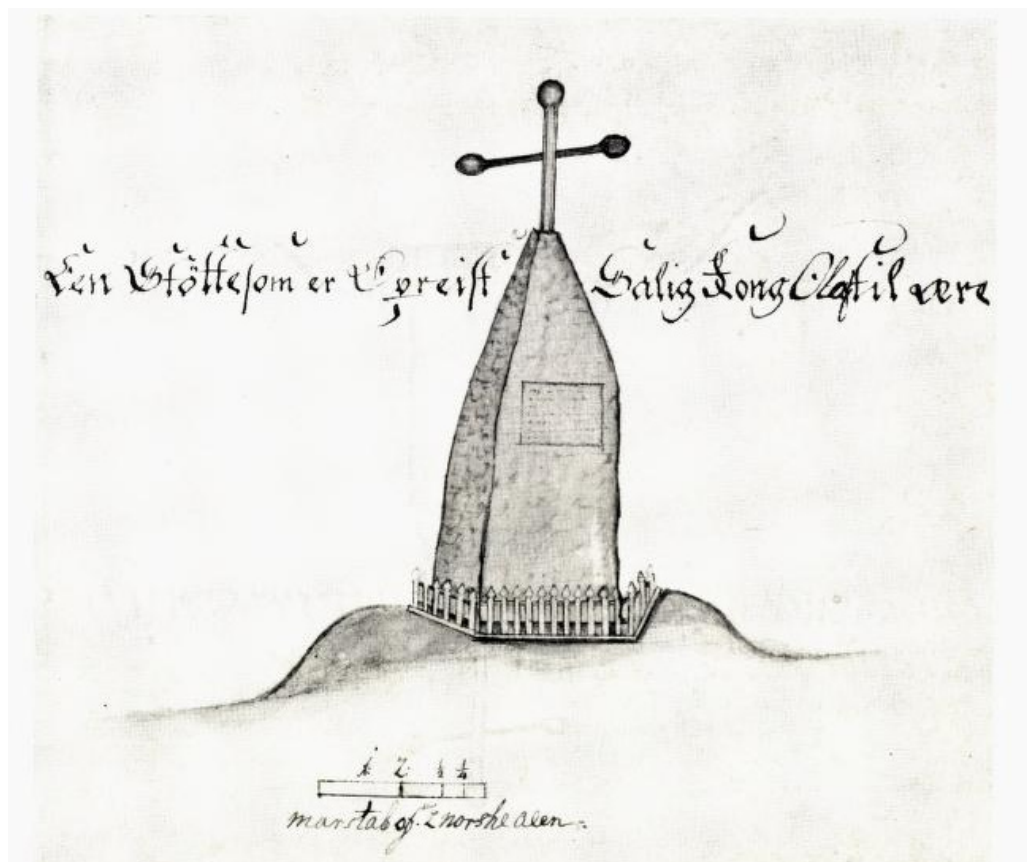 Een Stötte som er Opreist Salig Kong Olaf til ære
1 2 ½ ¼
marstab af 2 norske alen